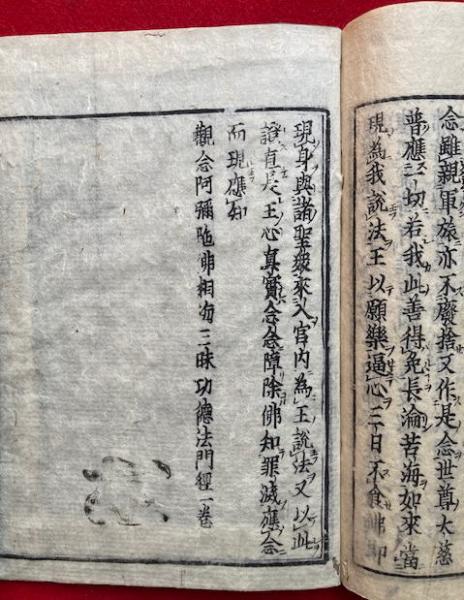 念雖親軍旅亦不廢捨又作是念世尊大慈
普應一切若我此善得免長淪苦海如來當
現為我說法王以願樂逼心三日不食佛即
現身與諸聖衆來入宮內為王說法又以此
證直是王心真實念念障除佛知罪滅應念
而現應知
觀念阿彌陀佛相海三昧功德法門經一卷